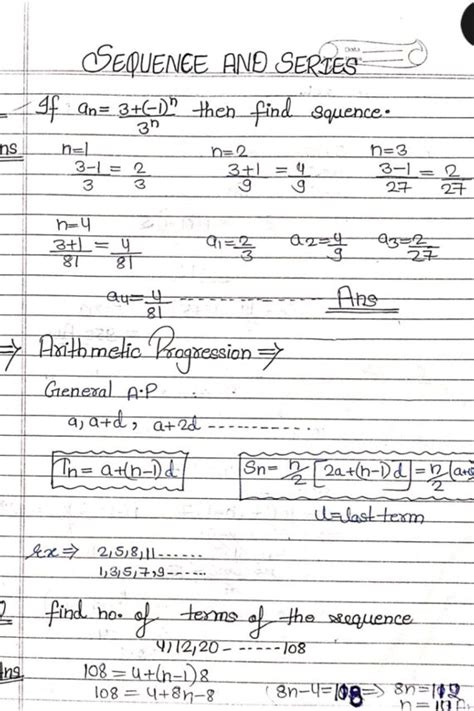 SEQUENCE AND SERIES
Date
If an = 3+(-1)^n / 3^n then find squence.
ns
n=1 n=2 n=3
3-1/3 = 2/3 3+1/9 = 4/9 3-1/27 = 2/27
n=4
3+1/81 = 4/81 a1=2/3 a2=4/9 a3=2/27
a4=4/81 ------------ Ans
⇒ Arithmetic Progression ⇒
General A.P
a, a+d, a+2d -----------
Tn = a+(n-1)d Sn= n/2 [2a+(n-1)d] = n/2 (a+
ll=last term
Ex ⇒ 2,5,8,11------
1,3,5,7,9------
find no. of terms of the sequence
4,12,20 ------108
Ans 108 = 4+(n-1)8
108 = 4+8n-8 (8n-4=108 ⇒ 8n=112
n =